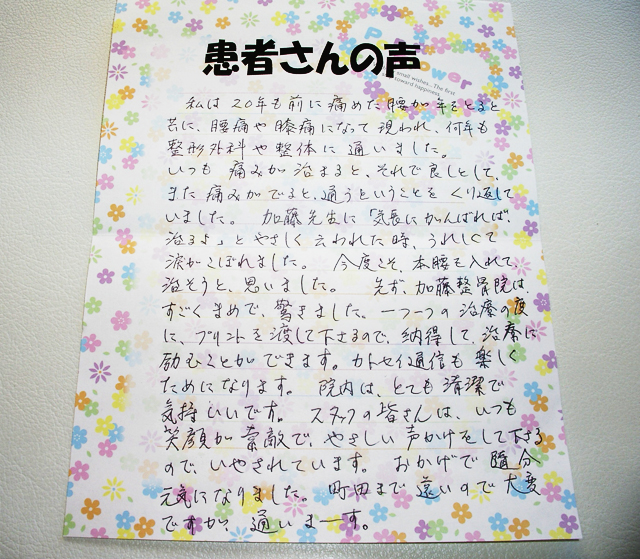 患者さんの声
small wishes...The first
toward happiness
私は20年も前に痛めた腰が年をとると
共に、腰痛や膝痛になって現われ、何年も
整形外科や整体に通いました。
いつも痛みが治まると、それで良しとして、
また痛みがでると、通うということをくり返して
いました。 加藤先生に「気長にがんばれば、
治るよ」とやさしく言われた時、うれしくて
涙がこぼれました。 今度こそ、本腰を入れて、
治そうと、思いました。 先ず、加藤整骨院は、
すごくまめで、驚きました。一つ一つの治療の度
に、プリントを渡して下さるので、納得して、治療に
励むことができます。カトセイ通信も楽しく
ためになります。 院内は、とても清潔で
気持いいです。 スタッフの皆さんは、いつも
笑顔が素敵で、やさしい声かけをして下さる
ので、いやされています。おかげで随分
元気になりました。町田まで遠いので大変
ですが 通いまーす。